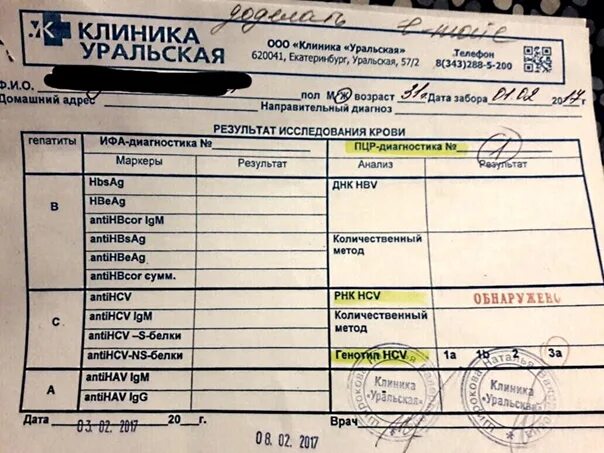 доделать
КЛИНИКА
УРАЛЬСКАЯ
ООО «Клиника «Уральская»
620041, Екатеринбург, Уральская, 57/2
Телефон
8(343)288-5-200
Ф.И.О. пол М Ж возраст 31г. Дата забора 01.02 2017г
Домашний адрес Направительный диагноз
РЕЗУЛЬТАТ ИССЛЕДОВАНИЯ КРОВИ
гепатиты ИФА-диагностика № ПЦР-диагностика № 1
Маркеры Результат Анализ Результат
B
HbsAg ДНК HBV
HBeAg
antiHBcor IgM
antiHBsAg Количественный метод
antiHBeAg
antiHBcor сумм.
C
antiHCV РНК HCV ОБНАРУЖЕНО
antiHCV IgM Количественный метод
antiHCV –S-белки
antiHCV-NS-белки Генотип HCV 1a 1b 2 3a
A
antiHAV IgM
antiHAV IgG
Клиника "Уральская"
Клиника "Уральская"
Дата 20 г. Врач
03. 02. 2017
08. 02. 2017